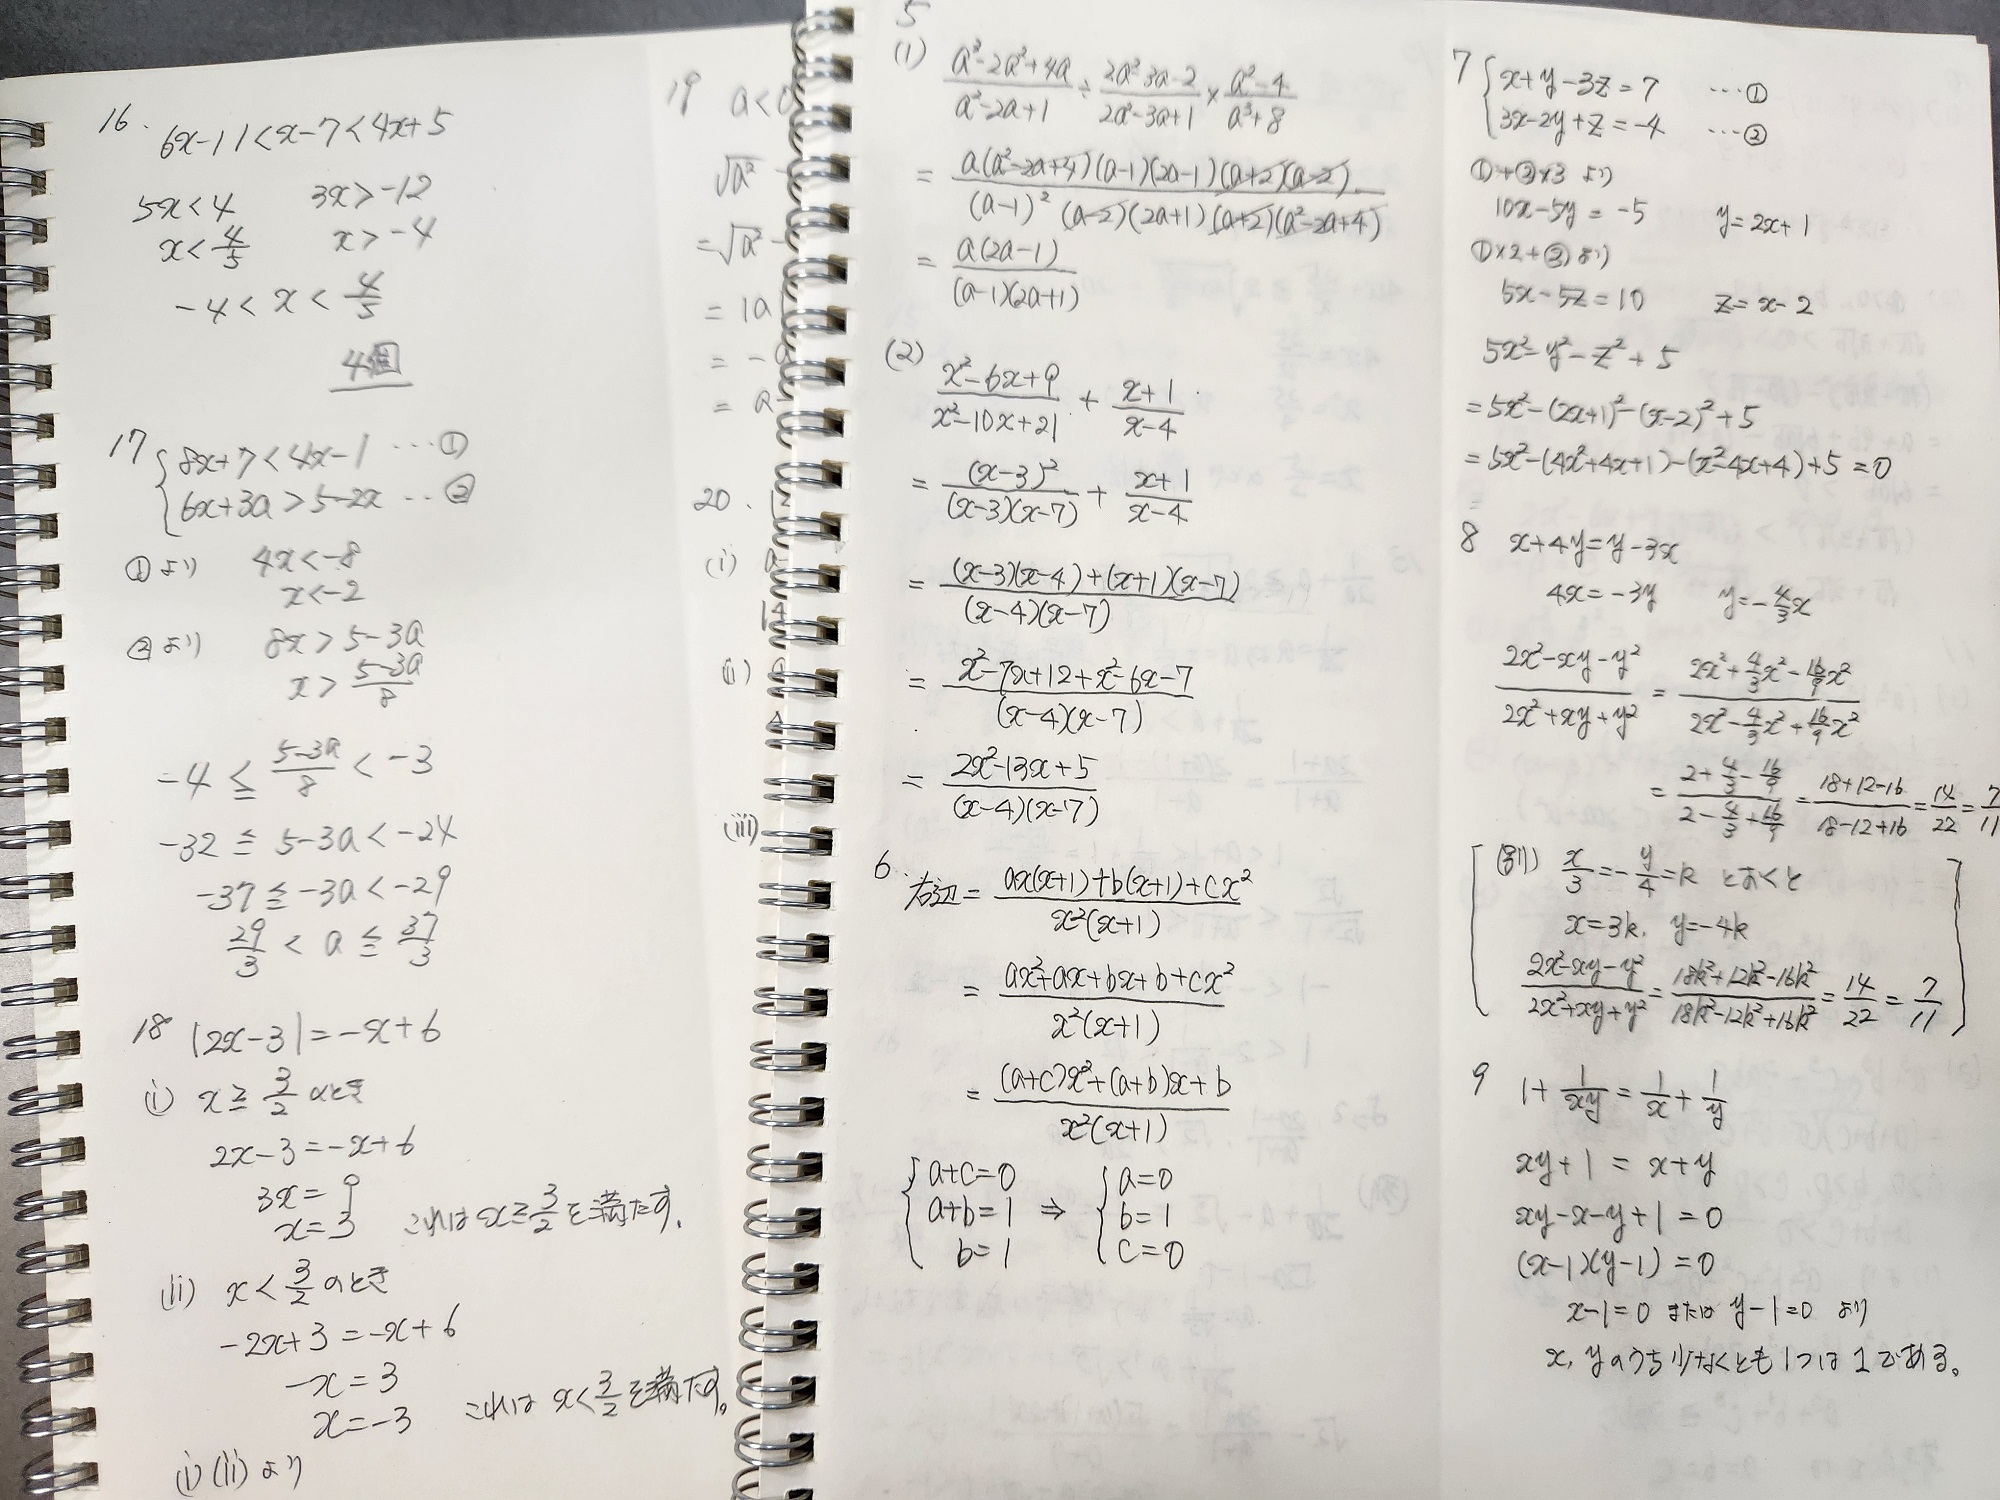 16.
6x-11<x-7<4x+5
5x<4 3x>-12
x<4/5 x>-4
-4<x<4/5
4個
17
{8x+7<4x-1 …①
6x+3a>5-2x …②
①より 4x<-8
x<-2
②より 8x>5-3a
x>(5-3a)/8
-4≦(5-3a)/8<-3
-32≦5-3a<-24
-37≦-3a<-29
29/3<a≦37/3
18 |2x-3|=-x+6
(i) x≧3/2のとき
2x-3=-x+6
3x=9
x=3 これはx≧3/2を満たす。
(ii) x<3/2のとき
-2x+3=-x+6
-x=3
x=-3 これはx<3/2を満たす。
(i)(ii)より
19 a<0
√a²-
=√a²-
=|a
=-
=a-
20.
(i)
14
(ii)
(iii)
5
(1) (a³-2a²+4a)/(a²-2a+1)÷(2a²3a-2)/(2a²-3a+1)×(a²-4)/(a³+8)
=a(a²-2a+4)(a-1)(2a-1)(a+2)(a-2)/(a-1)²(a-2)(2a+1)(a+2)(a²-2a+4)
=a(2a-1)/(a-1)(2a+1)
(2)
(x²-6x+9)/(x²-10x+21)+(x+1)/(x-4)
=(x-3)²/(x-3)(x-7)+(x+1)/(x-4)
=((x-3)(x-4)+(x+1)(x-7))/(x-4)(x-7)
=(x²-7x+12+x²-6x-7)/(x-4)(x-7)
=(2x²-13x+5)/(x-4)(x-7)
6.
右辺=(ax(x+1)+b(x+1)+cx²)/x²(x+1)
=(ax²+ax+bx+b+cx²)/x²(x+1)
=((a+c)x²+(a+b)x+b)/x²(x+1)
{a+c=0 {a=0
a+b=1 ⇒ b=1
b=1 c=0
7 {x+y-3z=7 …①
3x-2y+z=-4 …②
①+②×3 より
10x-5y=-5 y=2x+1
①×2+②より
5x-5z=10 z=x-2
5x²-y²-z²+5
=5x²-(2x+1)²-(x-2)²+5
=5x²-(4x²+4x+1)-(x²-4x+4)+5=0
=
8 x+4y=y-3x
4x=-3y y=-4/3x
(2x²-xy-y²)/(2x²+xy+y²)=(2x²+4/3x²-16/9x²)/(2x²-4/3x²+16/9x²)
=(2+4/3-16/9)/(2-4/3+16/9)=(18+12-16)/(18-12+16)=14/22=7/11
[(別) x/3=-y/4=k とおくと
x=3k, y=-4k
(2x²-xy-y²)/(2x²+xy+y²)=(18k²+12k²-16k²)/(18k²-12k²+16k²)=14/22=7/11]
9 1+1/xy=1/x+1/y
xy+1=x+y
xy-x-y+1=0
(x-1)(y-1)=0
x-1=0 または y-1=0 より
x, yのうち少なくとも1つは1である。